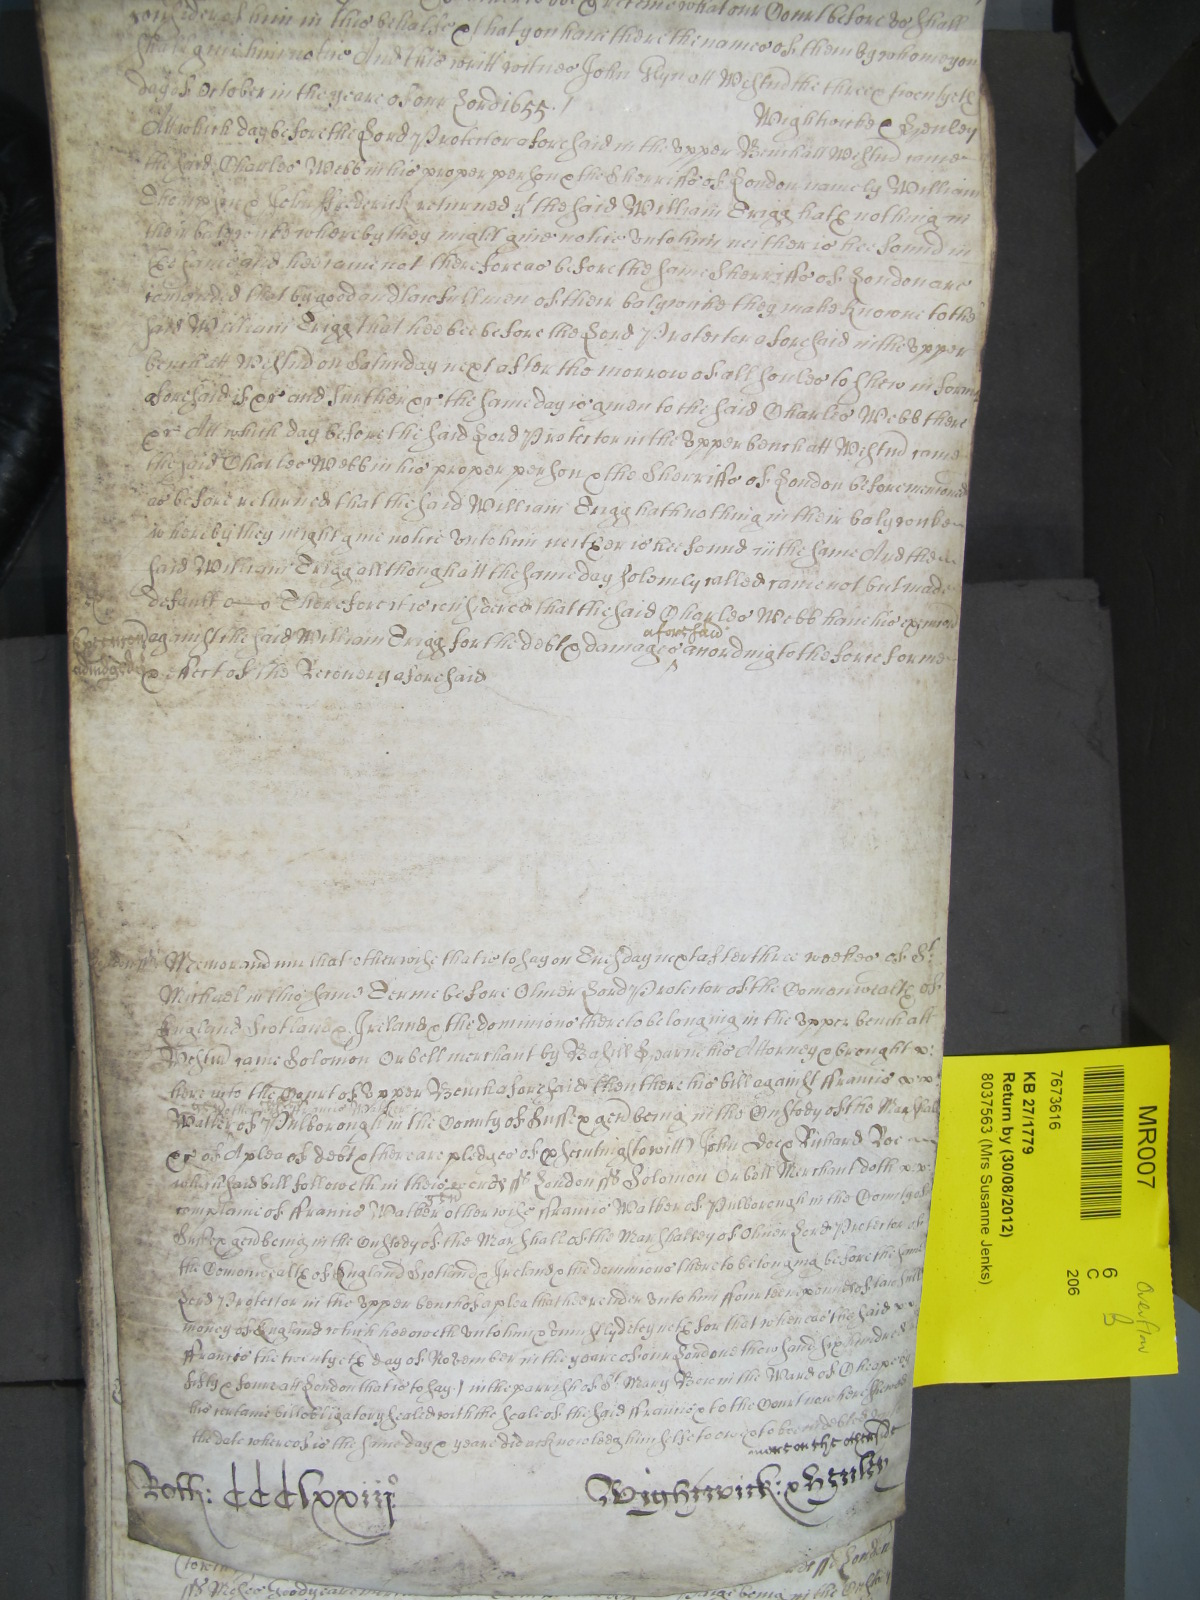 consider of him in this behalfe & that you have there the names of them by whome you
shall give him notice And this writt witnes John Glyn att Westmr the three & twentyeth
day of October in the yeare of our Lord 1655 /
Wightwicke & Henley
Att which day before the Lord Protector aforesaid in the upper Bench att Westmr came
the said Charles Webb in his proper person & the Sherriffs of London namely William
Thompson & John Frederick returned yt the said William Trigg hath nothing in
their balywicke whereby they might give notice unto him neither is hee found in
the same and hee came not therefore as before the same Sherriffs of London are
comanded that by good and lawfull men of their balywicke they make knowne to the
said William Trigg that hee bee before the Lord Protector aforesaid in the upper
bench att Westmr on Saturday next after the morrow of all soules to shew in forme
aforesaid if &c and further &c the same day is given to the said Charles Webb there
&c Att which day before the said Lord Protector in the upper bench att Westmr came
the said Charles Webb in his proper person & the Sherriffs of London before menconed
as before returned that the said William Trigg hath nothing in their balywicke
whereby they might give notice unto him neither is hee found in the same And the
said William Trigg although att the same day solemly called came not but made
default Therefore it is considered that the said Charles Webb have his execucon
against the said William Trigg for the debt & damages aforesaid according to the force forme
& effect of the Recovery aforesaid
Memorandum that otherwise that is to say on Tuesday next after three weekes of St
Michael in this same Terme before Oliver Lord Protector of the Comonwealth of
England Scotland & Ireland & the dominions thereto belonging in the upper bench att
Westmr came Solomon Orbell merchant by Basill Hearne his Attorney & brought
here into the Court of upper Bench aforesaid then there his bill against ffrancis
Walker of Pulborough in the County of Sussex gen being in the Custody of the Marshall
&c of A plea of debt & there are pledges of prosecuting (to witt) John Doe & Richard Roe
which said bill followeth in these words ss London ss Solomon Orbell Merchant doth
complaine of ffrancis Walker gen otherwise ffrancis Walker of Pulborough in the County of
Sussex gen being in the Custody of the Marshall of the Marshalsey of Oliver Lord Protector of
the Comonwealth of England Scotland & Ireland & the dominions thereto belonging before the same
Lord Protector in the upper bench of a plea that hee render unto him ffourteen pounds of lawfull
money of England which hee oweth unto him & unjustly deteyneth for that whereas the said
ffrancis the twentyeth day of November in the yeare of our Lord one thousand six hundred
fifty & foure att London that is to say in the parrish of St Mary Bow in the Ward of Cheape by
his certaine bill obligatory sealed with the seale of the said ffrancis & to the Court now here shewed
the date whereof is the same day & yeare did acknowledg himselfe to owe & to bee indebted
more on the otherside
Rott: CCClxxiijo
Wightwick: & Henley
MR007
6
C
206
Overflow
B
7673616
KB 27/1779
Return by (30/08/2012)
8037563 (Mrs Susanne Jenks)